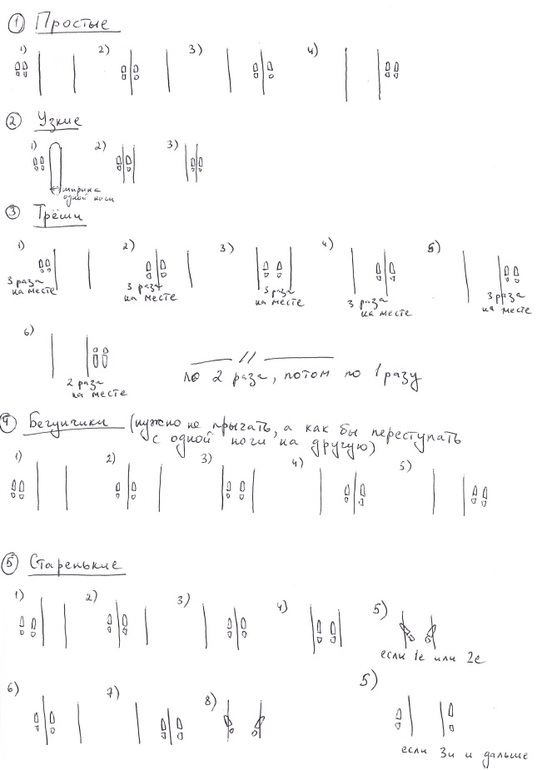 ① Простые
1) 2) 3) 4)
② Узкие
1) 2) 3)
ширина
одной ноги
③ Трёши
1) 2) 3) 4) 5)
3 раза
на месте
3 раза
на месте
3 раза
на месте
3 раза
на месте
3 раза
на месте
6)
2 раза
на месте
— // —
по 2 раза, потом по 1 разу
④ Бегунчики (нужно не прыгать, а как бы переступать
с одной ноги на другую)
1) 2) 3) 4) 5)
⑤ Старенькие
1) 2) 3) 4) 5)
если 1е или 2е
6) 7) 8) 5)
если 3и и дальше